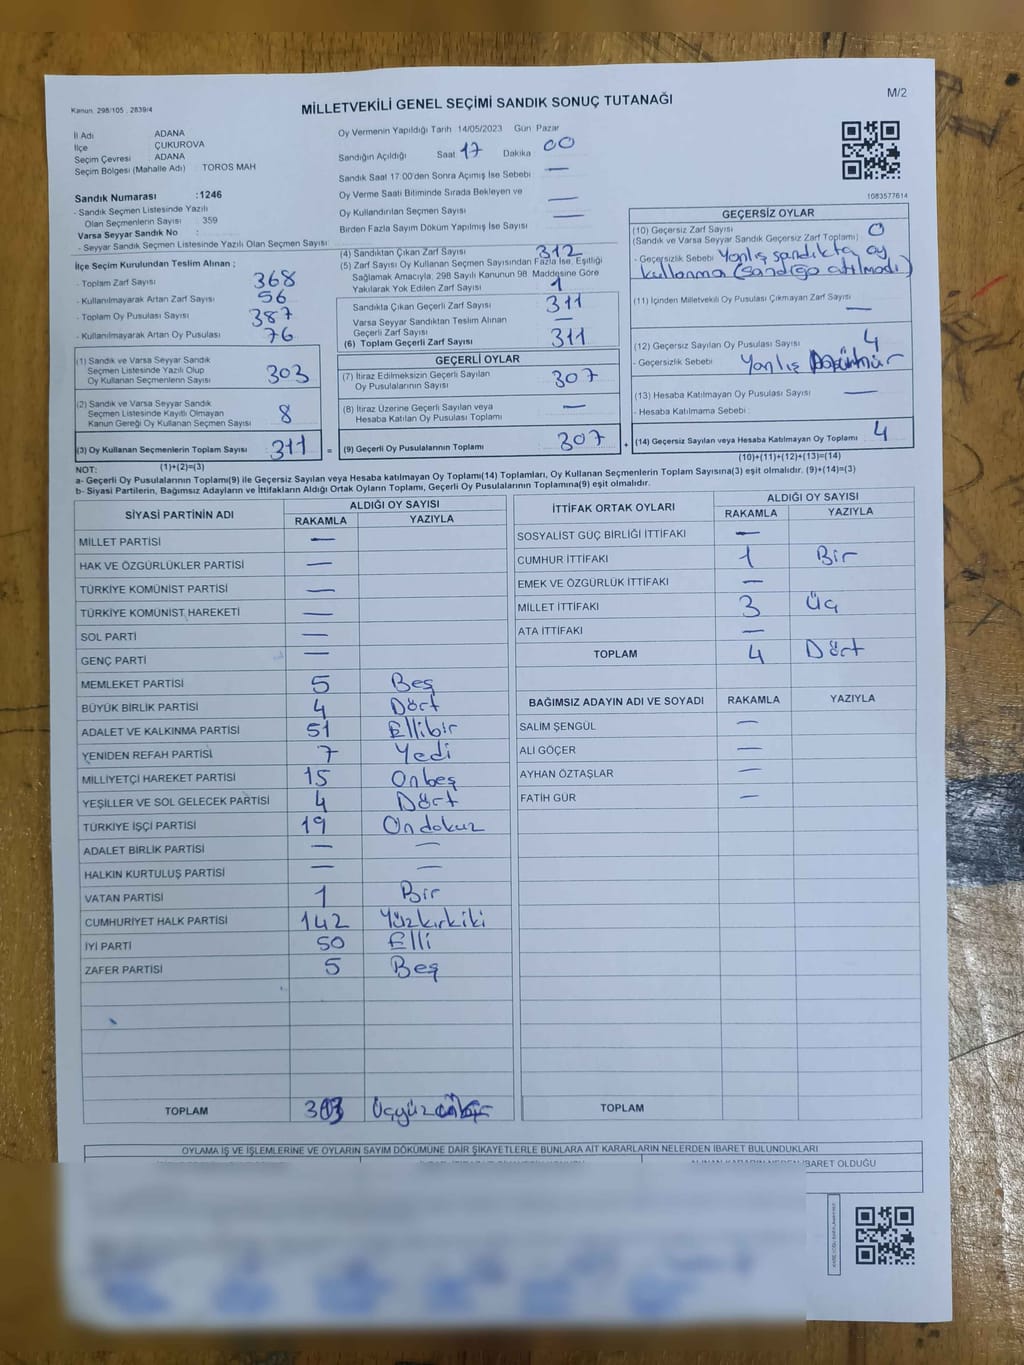 Kanun. 298/105 , 2839/4
MİLLETVEKİLİ GENEL SEÇİMİ SANDIK SONUÇ TUTANAĞI
M/2
İl Adı ADANA
İlçe ÇUKUROVA
Seçim Çevresi ADANA
Seçim Bölgesi (Mahalle Adı) TOROS MAH
Sandık Numarası :1246
- Sandık Seçmen Listesinde Yazılı
Olan Seçmenlerin Sayısı : 359
Varsa Seyyar Sandık No :
- Seyyar Sandık Seçmen Listesinde Yazılı Olan Seçmen Sayısı:
Oy Vermenin Yapıldığı Tarih 14/05/2023 Gün Pazar
Sandığın Açıldığı Saat 17 Dakika 00
Sandık Saat 17:00'den Sonra Açılmış İse Sebebi —
Oy Verme Saati Bitiminde Sırada Bekleyen ve
Oy Kullandırılan Seçmen Sayısı —
Birden Fazla Sayım Döküm Yapılmış İse Sayısı —
1083577614
İlçe Seçim Kurulundan Teslim Alınan ;
- Toplam Zarf Sayısı 368
- Kullanılmayarak Artan Zarf Sayısı 56
- Toplam Oy Pusulası Sayısı 387
- Kullanılmayarak Artan Oy Pusulası 76
(1) Sandık ve Varsa Seyyar Sandık
Seçmen Listesinde Yazılı Olup
Oy Kullanan Seçmenlerin Sayısı 303
(2) Sandık ve Varsa Seyyar Sandık
Seçmen Listesinde Kayıtlı Olmayan
Kanun Gereği Oy Kullanan Seçmen Sayısı 8
(3) Oy Kullanan Seçmenlerin Toplam Sayısı 311 =
(1)+(2)=(3)
(4) Sandıktan Çıkan Zarf Sayısı 312
(5) Zarf Sayısı Oy Kullanan Seçmen Sayısından Fazla İse, Eşitliği
Sağlamak Amacıyla, 298 Sayılı Kanunun 98. Maddesine Göre
Yakılarak Yok Edilen Zarf Sayısı 1
Sandıkta Çıkan Geçerli Zarf Sayısı 311
Varsa Seyyar Sandıktan Teslim Alınan
Geçerli Zarf Sayısı —
(6) Toplam Geçerli Zarf Sayısı 311
GEÇERLİ OYLAR
(7) İtiraz Edilmeksizin Geçerli Sayılan
Oy Pusulalarının Sayısı 307
(8) İtiraz Üzerine Geçerli Sayılan veya
Hesaba Katılan Oy Pusulası Toplamı —
(9) Geçerli Oy Pusulalarının Toplamı 307 +
GEÇERSİZ OYLAR
(10) Geçersiz Zarf Sayısı 0
(Sandık ve Varsa Seyyar Sandık Geçersiz Zarf Toplamı)
- Geçersizlik Sebebi Yanlış sandıkta oy
kullanma (Sandığa atılmadı)
(11) İçinden Milletvekili Oy Pusulası Çıkmayan Zarf Sayısı
—
(12) Geçersiz Sayılan Oy Pusulası Sayısı 4
- Geçersizlik Sebebi Yanlış
(13) Hesaba Katılmayan Oy Pusulası Sayısı —
- Hesaba Katılmama Sebebi
(14) Geçersiz Sayılan veya Hesaba Katılmayan Oy Toplamı 4
(10)+(11)+(12)+(13)=(14)
NOT:
a- Geçerli Oy Pusulalarının Toplamı(9) ile Geçersiz Sayılan veya Hesaba katılmayan Oy Toplamı(14) Toplamları, Oy Kullanan Seçmenlerin Toplam Sayısına(3) eşit olmalıdır. (9)+(14)=(3)
b- Siyasi Partilerin, Bağımsız Adayların ve İttifakların Aldığı Ortak Oyların Toplamı, Geçerli Oy Pusulalarının Toplamına(9) eşit olmalıdır.
SİYASİ PARTİNİN ADI ALDIĞI OY SAYISI
RAKAMLA YAZIYLA
MİLLET PARTİSİ —
HAK VE ÖZGÜRLÜKLER PARTİSİ —
TÜRKİYE KOMÜNİST PARTİSİ —
TÜRKİYE KOMÜNİST HAREKETİ —
SOL PARTİ —
GENÇ PARTİ —
MEMLEKET PARTİSİ 5 Beş
BÜYÜK BİRLİK PARTİSİ 4 Dört
ADALET VE KALKINMA PARTİSİ 51 Ellibir
YENİDEN REFAH PARTİSİ 7 Yedi
MİLLİYETÇİ HAREKET PARTİSİ 15 Onbeş
YEŞİLLER VE SOL GELECEK PARTİSİ 4 Dört
TÜRKİYE İŞÇİ PARTİSİ 19 Ondokuz
ADALET BİRLİK PARTİSİ — —
HALKIN KURTULUŞ PARTİSİ — —
VATAN PARTİSİ 1 Bir
CUMHURİYET HALK PARTİSİ 142 Yüzkırkiki
İYİ PARTİ 50 Elli
ZAFER PARTİSİ 5 Beş
TOPLAM
İTTİFAK ORTAK OYLARI ALDIĞI OY SAYISI
RAKAMLA YAZIYLA
SOSYALİST GÜÇ BİRLİĞİ İTTİFAKI —
CUMHUR İTTİFAKI 1 Bir
EMEK VE ÖZGÜRLÜK İTTİFAKI —
MİLLET İTTİFAKI 3 Üç
ATA İTTİFAKI —
TOPLAM 4 Dört
BAĞIMSIZ ADAYIN ADI VE SOYADI RAKAMLA YAZIYLA
SALİM ŞENGÜL —
ALİ GÖÇER —
AYHAN ÖZTAŞLAR —
FATİH GÜR —
TOPLAM
OYLAMA İŞ VE İŞLEMLERİNE VE OYLARIN SAYIM DÖKÜMÜNE DAİR ŞİKAYETLERLE BUNLARA AİT KARARLARIN NELERDEN İBARET BULUNDUKLARI
İBARET OLDUĞU